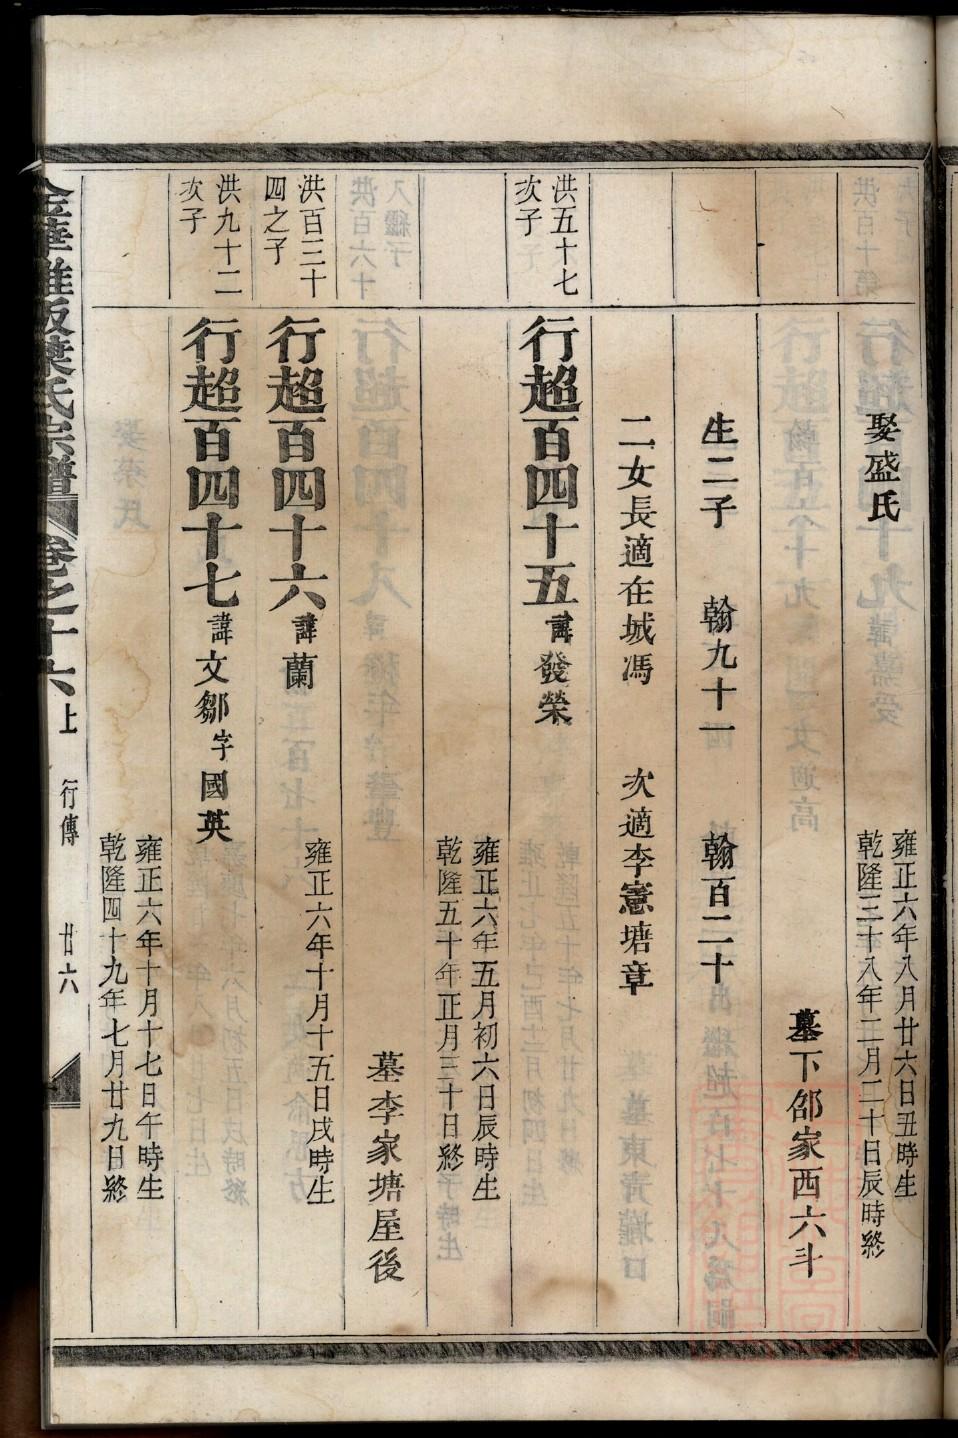 娶盛氏
雍正六年八月廿六日丑時生
乾隆三十八年二月二十日辰時終
墓下邵家西六斗
生二子 翰九十一 翰百二十
二女長適在城馮 次適李憲塘章
洪五十七
次子
行超百四十五諱發榮
雍正六年五月初六日辰時生
乾隆五十年正月三十日終
墓李家塘屋後
洪百三十
四之子
行超百四十六諱蘭
雍正六年十月十五日戌時生
洪九十二
次子
行超百四十七諱文鄒字國英
雍正六年十月十七日午時生
乾隆四十九年七月廿九日終
葉氏宗譜 卷之十六上 行傳 廿六